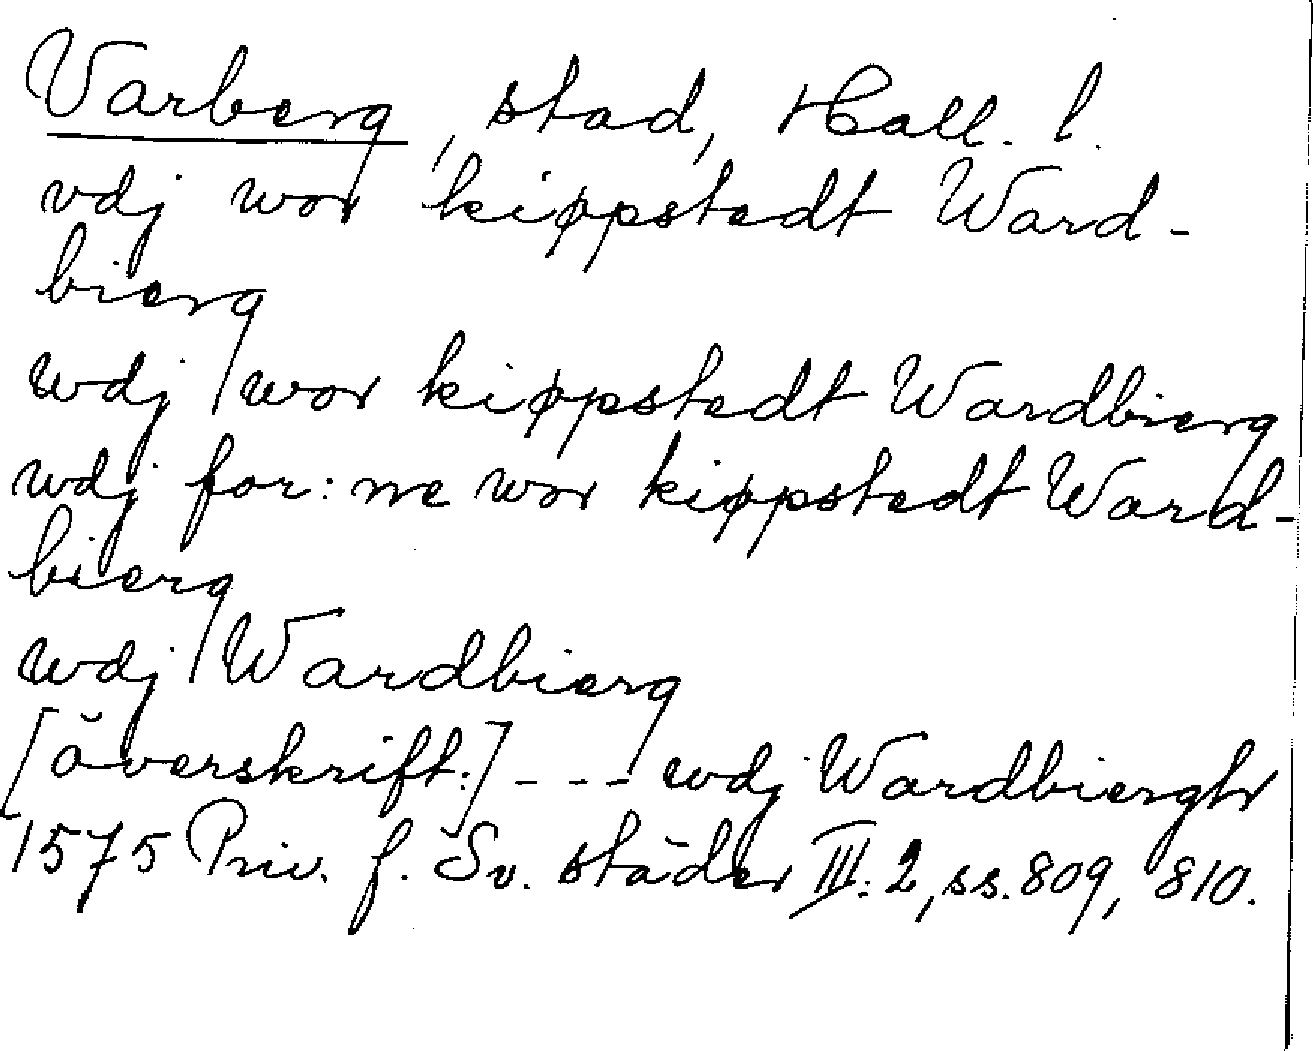 Varberg, stad, Hall. l.
vdj wor kiøpstedt Ward-
bierg
wdj wor kiøpstedt Wardbierg
wdj for: ne wor kiøpstedt Ward-
bierg
wdj Wardbierg
[överskrift:] - - - wdj Wardbiergh
1575 Priv. f. Sv. städer III: 2, ss. 809, 810.